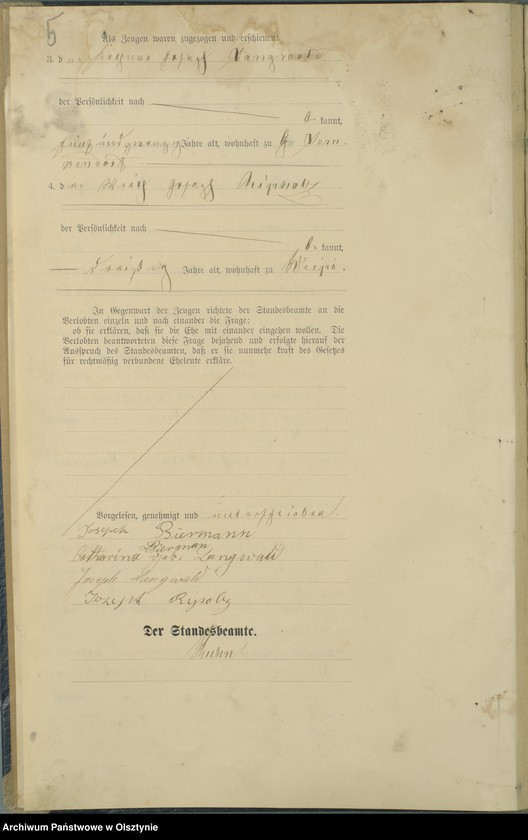 5
Als Zeugen waren zugezogen und erschienen:
3. der Joseph Langwald
der Persönlichkeit nach
be kannt,
fünf und zwanzig Jahre alt, wohnhaft zu Gr
4. der Joseph
der Persönlichkeit nach
be kannt,
dreißig Jahre alt, wohnhaft zu
In Gegenwart der Zeugen richtete der Standesbeamte an die
Verlobten einzeln und nach einander die Frage:
ob sie erklären, daß sie die Ehe mit einander eingehen wollen. Die
Verlobten beantworteten diese Frage bejahend und erfolgte hierauf der
Ausspruch des Standesbeamten, daß er sie nunmehr kraft des Gesetzes
für rechtmäßig verbundene Eheleute erkläre.
Vorgelesen, genehmigt und unterschrieben.
Joseph Biermann
Catharina Bierman geb. Langwald
Joseph Langwald
Jozeph
Der Standesbeamte.
Archiwum Państwowe w Olsztynie